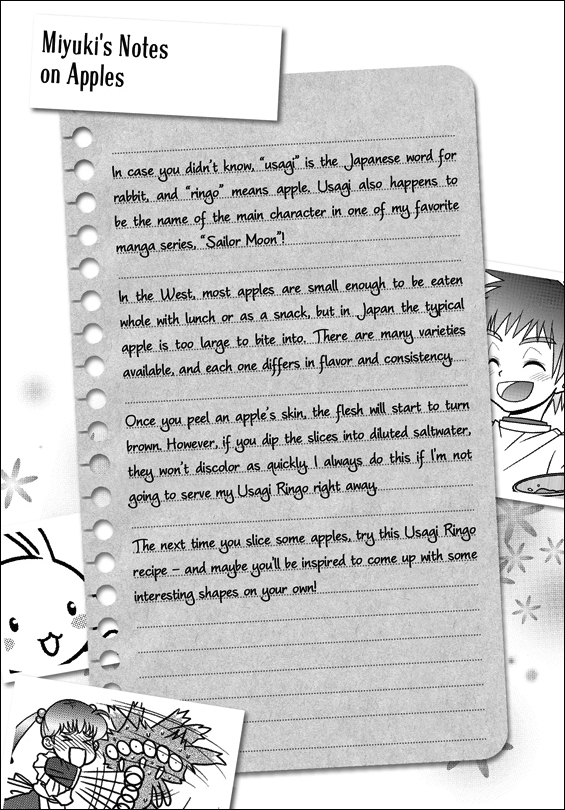 Miyuki's Notes
on Apples
In case you didn't know, "usagi" is the Japanese word for
rabbit, and "ringo" means apple. Usagi also happens to
be the name of the main character in one of my favorite
manga series, "Sailor Moon"!
In the West, most apples are small enough to be eaten
whole with lunch or as a snack, but in Japan the typical
apple is too large to bite into. There are many varieties
available, and each one differs in flavor and consistency.
Once you peel an apple's skin, the flesh will start to turn
brown. However, if you dip the slices into diluted saltwater,
they won't discolor as quickly. I always do this if I'm not
going to serve my Usagi Ringo right away.
The next time you slice some apples, try this Usagi Ringo
recipe – and maybe you'll be inspired to come up with some
interesting shapes on your own!